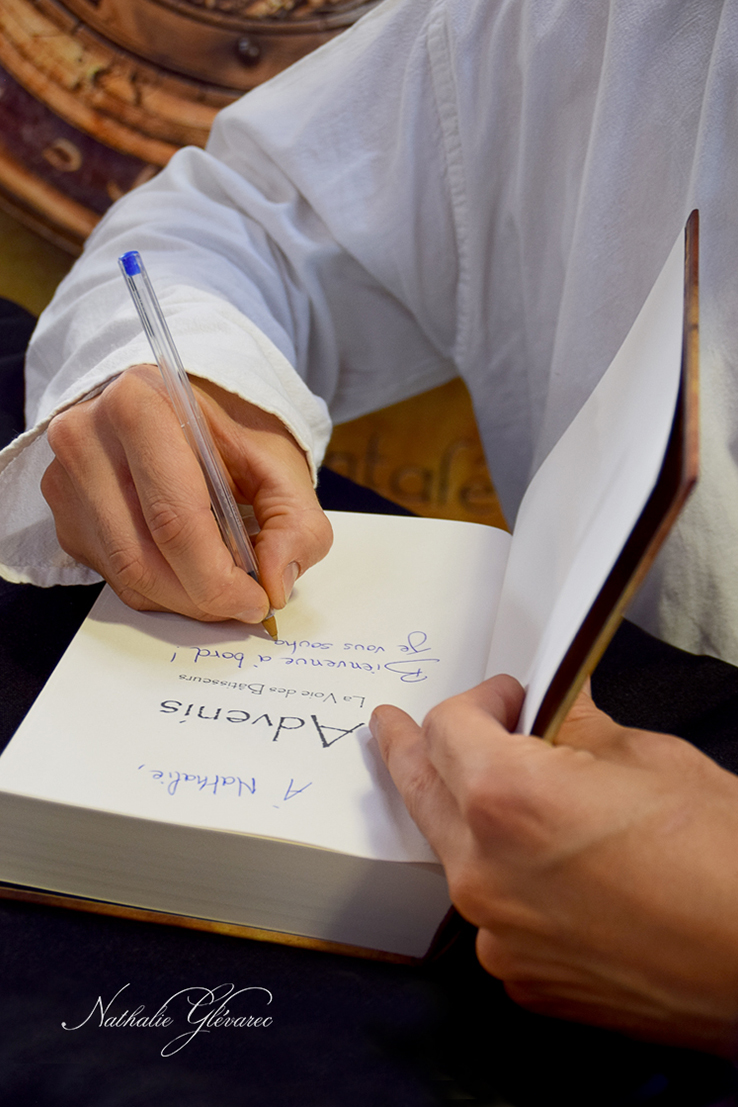 À Nathalie,
Advenis
La Voie des Bâtisseurs
Bienvenue à bord !
Je vous souha
Nathalie Glévarec